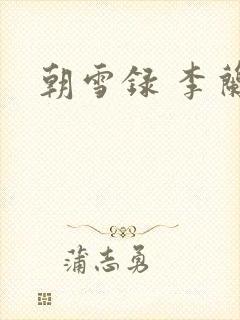 朝雪録 李蘭
蒲志勇